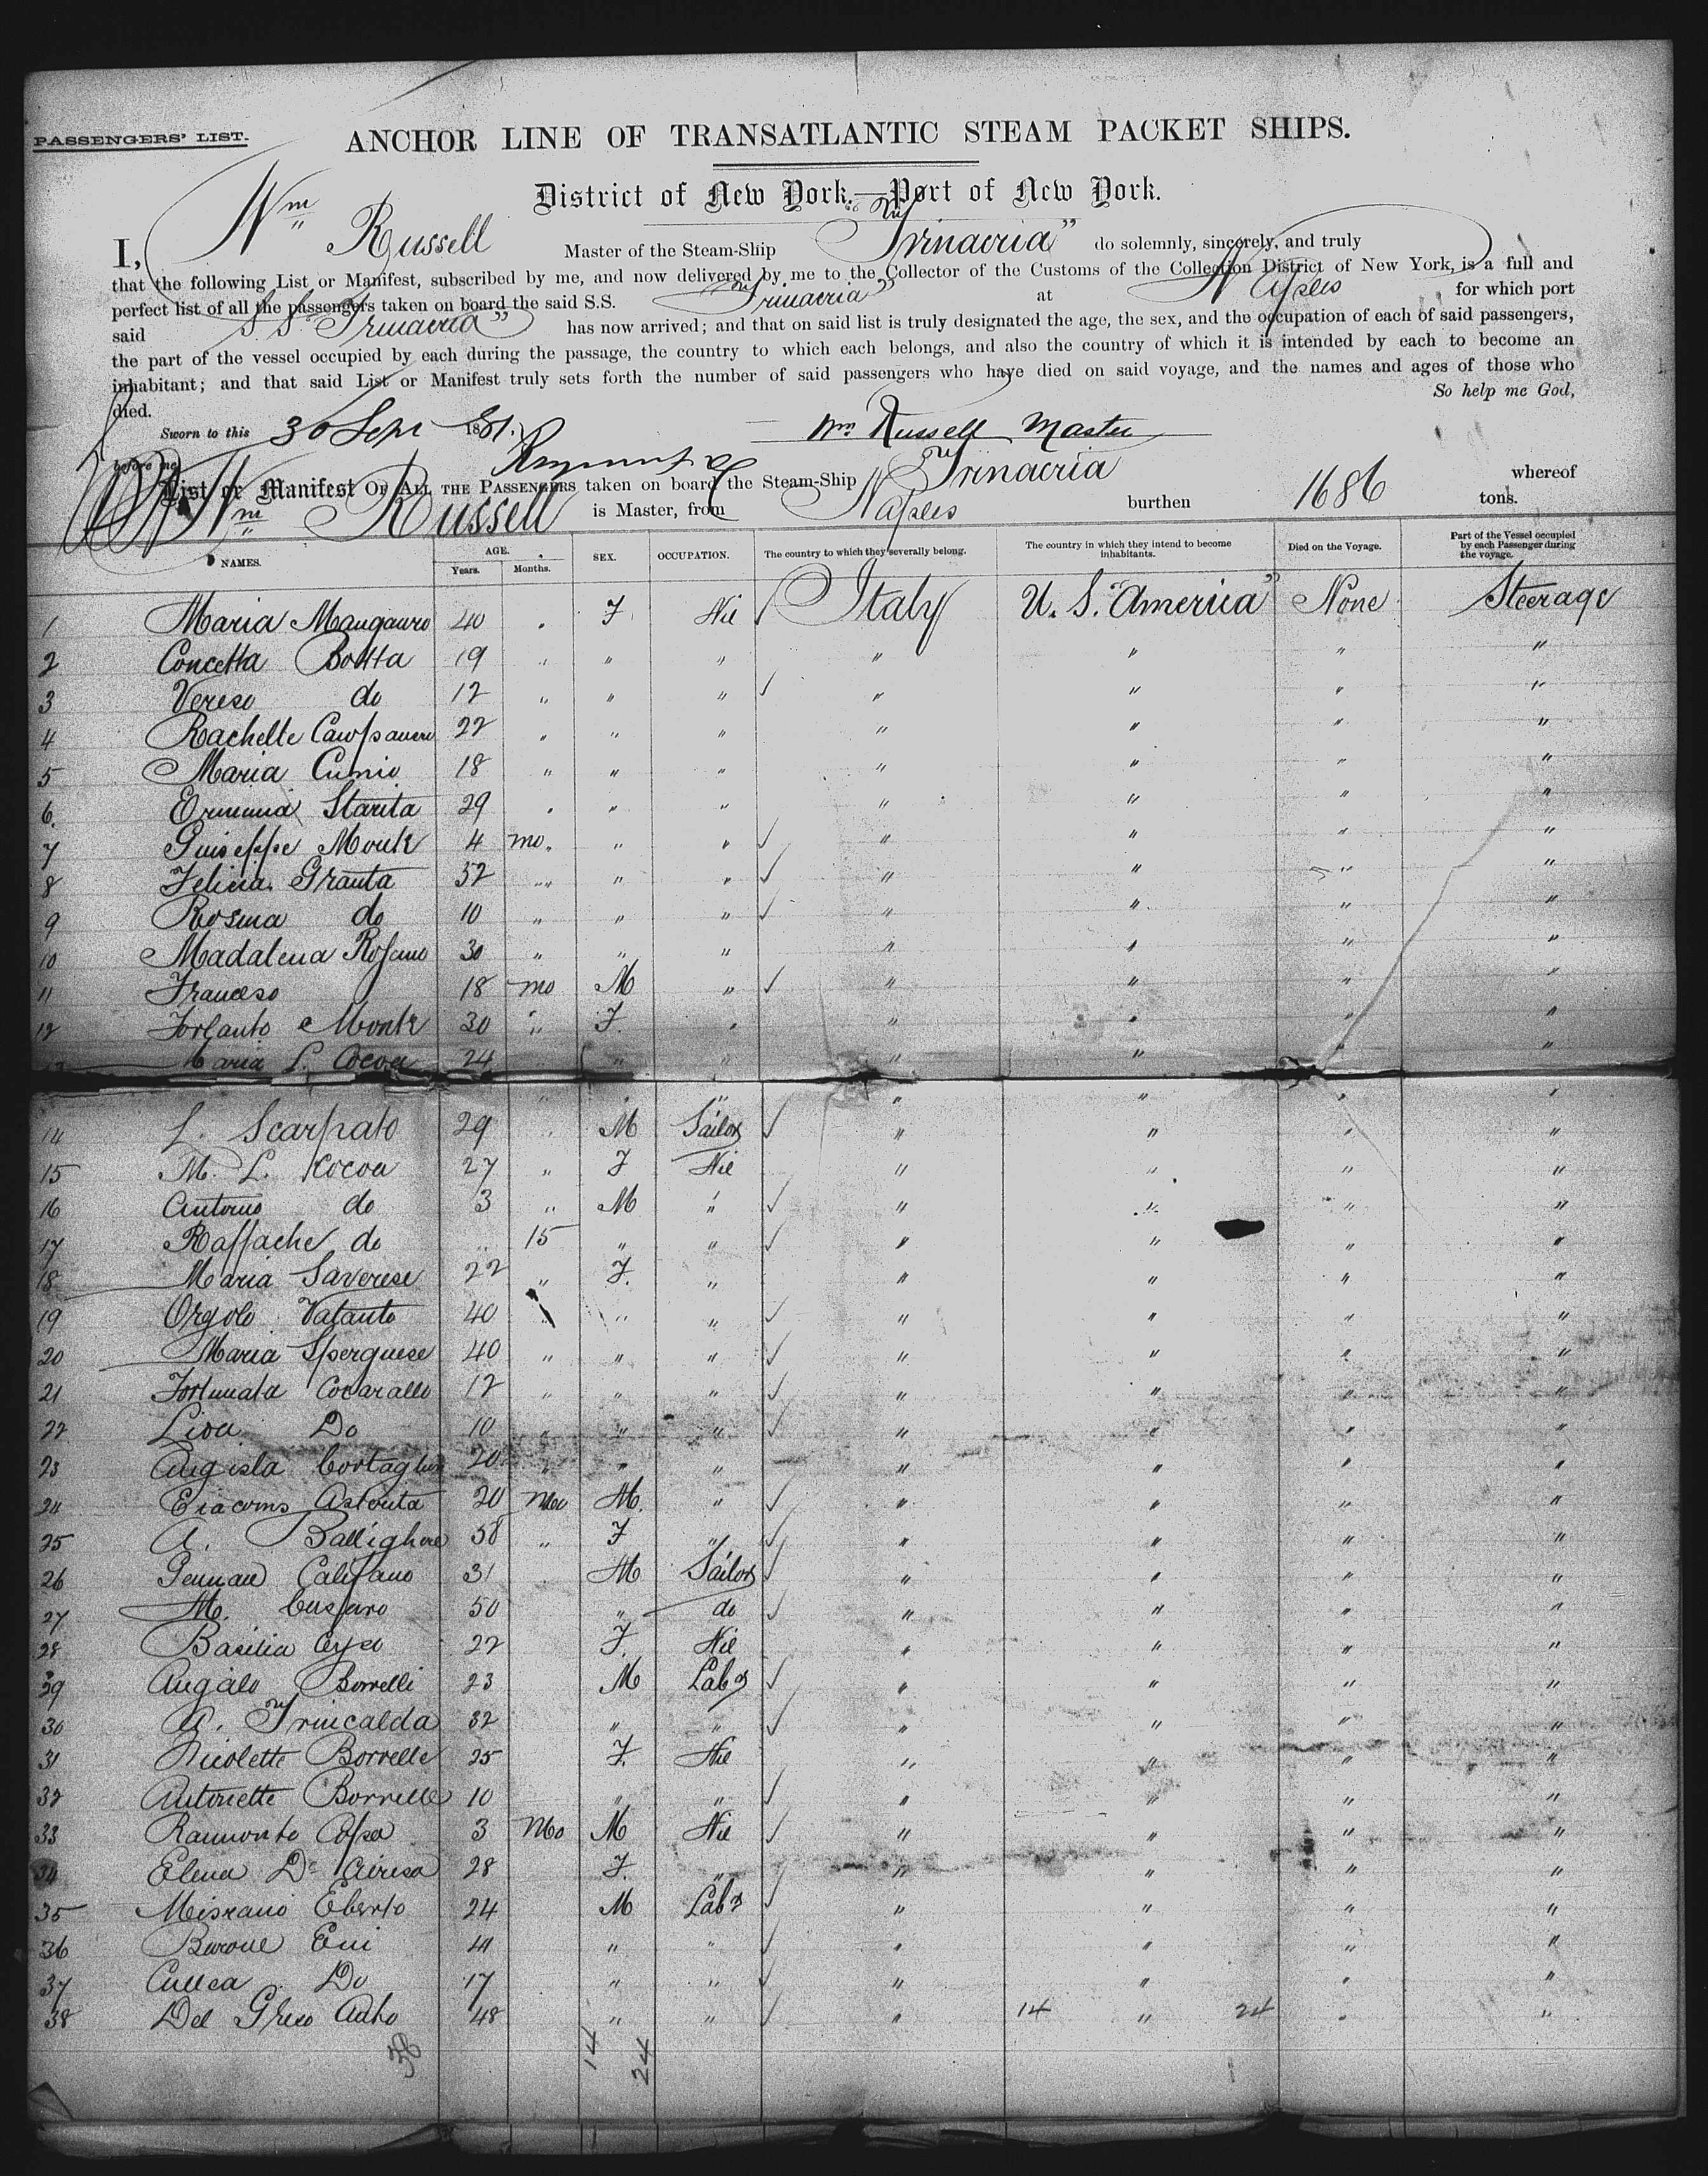 PASSENGERS' LIST.
ANCHOR LINE OF TRANSATLANTIC STEAM PACKET SHIPS.
District of New York.—Port of New York.
I, Wm Russell Master of the Steam-Ship "Trinacria" do solemnly, sincerely, and truly
that the following List or Manifest, subscribed by me, and now delivered by me to the Collector of the Customs of the Collection District of New York, is a full and
perfect list of all the passengers taken on board the said S.S. "Trinacria" at Naples for which port
said S. S. "Trinacria" has now arrived; and that on said list is truly designated the age, the sex, and the occupation of each of said passengers,
the part of the vessel occupied by each during the passage, the country to which each belongs, and also the country of which it is intended by each to become an
inhabitant; and that said List or Manifest truly sets forth the number of said passengers who have died on said voyage, and the names and ages of those who
died. So help me God,
Sworn to this 30 Sept 1881. Wm Russell Master
before me
List or Manifest OF ALL THE PASSENGERS taken on board the Steam-Ship Trinacria whereof
Wm Russell is Master, from Naples burthen 1686 tons.
NAMES. AGE. Years. Months. SEX. OCCUPATION. The country to which they severally belong. The country in which they intend to become inhabitants. Died on the Voyage. Part of the Vessel occupied by each Passenger during the voyage.
1 Maria Mangauro 40 " F Nil Italy U. S. "America" None Steerage
2 Concetta Botta 19 " " " " " " "
3 Verese do 12 " " " " " " "
4 Rachelle 22 " " " " " " "
5 Maria Cunio 18 " " " " " " "
6. Starita 29 " " " " " " "
7 Guiseppe Monk 4 mo. " " " " " "
8 Felicia Granta 52 " " " " " " "
9 Rosina do 10 " " " " " " "
10 Madalena 30 " " " " " " "
11 18 mo M " " " " "
12 Monk 30 " F. " " " " "
13 Maria L. Cocoa 24 " " " " " " "
14 L. Scarpato 29 " M Sailor " " " "
15 M. L. Cocoa 27 " F Nil " " " "
16 Antonio do 3 " M " " " " "
17 Raffache do " 15 " " " " " "
18 Maria Saverese 22 " F. " " " " "
19 Orgolo Vatanto 40 " " " " " " "
20 Maria Sperguese 40 " " " " " " "
21 Fortunata Cocarallo 12 " " " " " " "
22 Lioa Do 10 " " " " " " "
23 20 " " " " " " "
24 Astorita 20 Mo M. " " " " "
25 A. 58 " F " " " " "
26 Califano 31 M Sailor " " " "
27 M. 50 " do " " " "
28 Basilia 22 F. Nil " " " "
29 Angalo Borrelli 23 M Labr " " " "
30 A. Trincalda 32 " " " " " "
31 Nicolette Borrelle 25 F. Nil " " " "
32 Antoinette Borrelle 10 " " " " " "
33 Raimonto 3 Mo M Nil " " " "
34 Elena 28 F. " " " " "
35 Eberto 24 M Labr " " " "
36 Barone Eni " " " " " "
37 Do 17 " " " " " "
38 Del Greco 48 " " " 14 " 24 " "
38 14 24